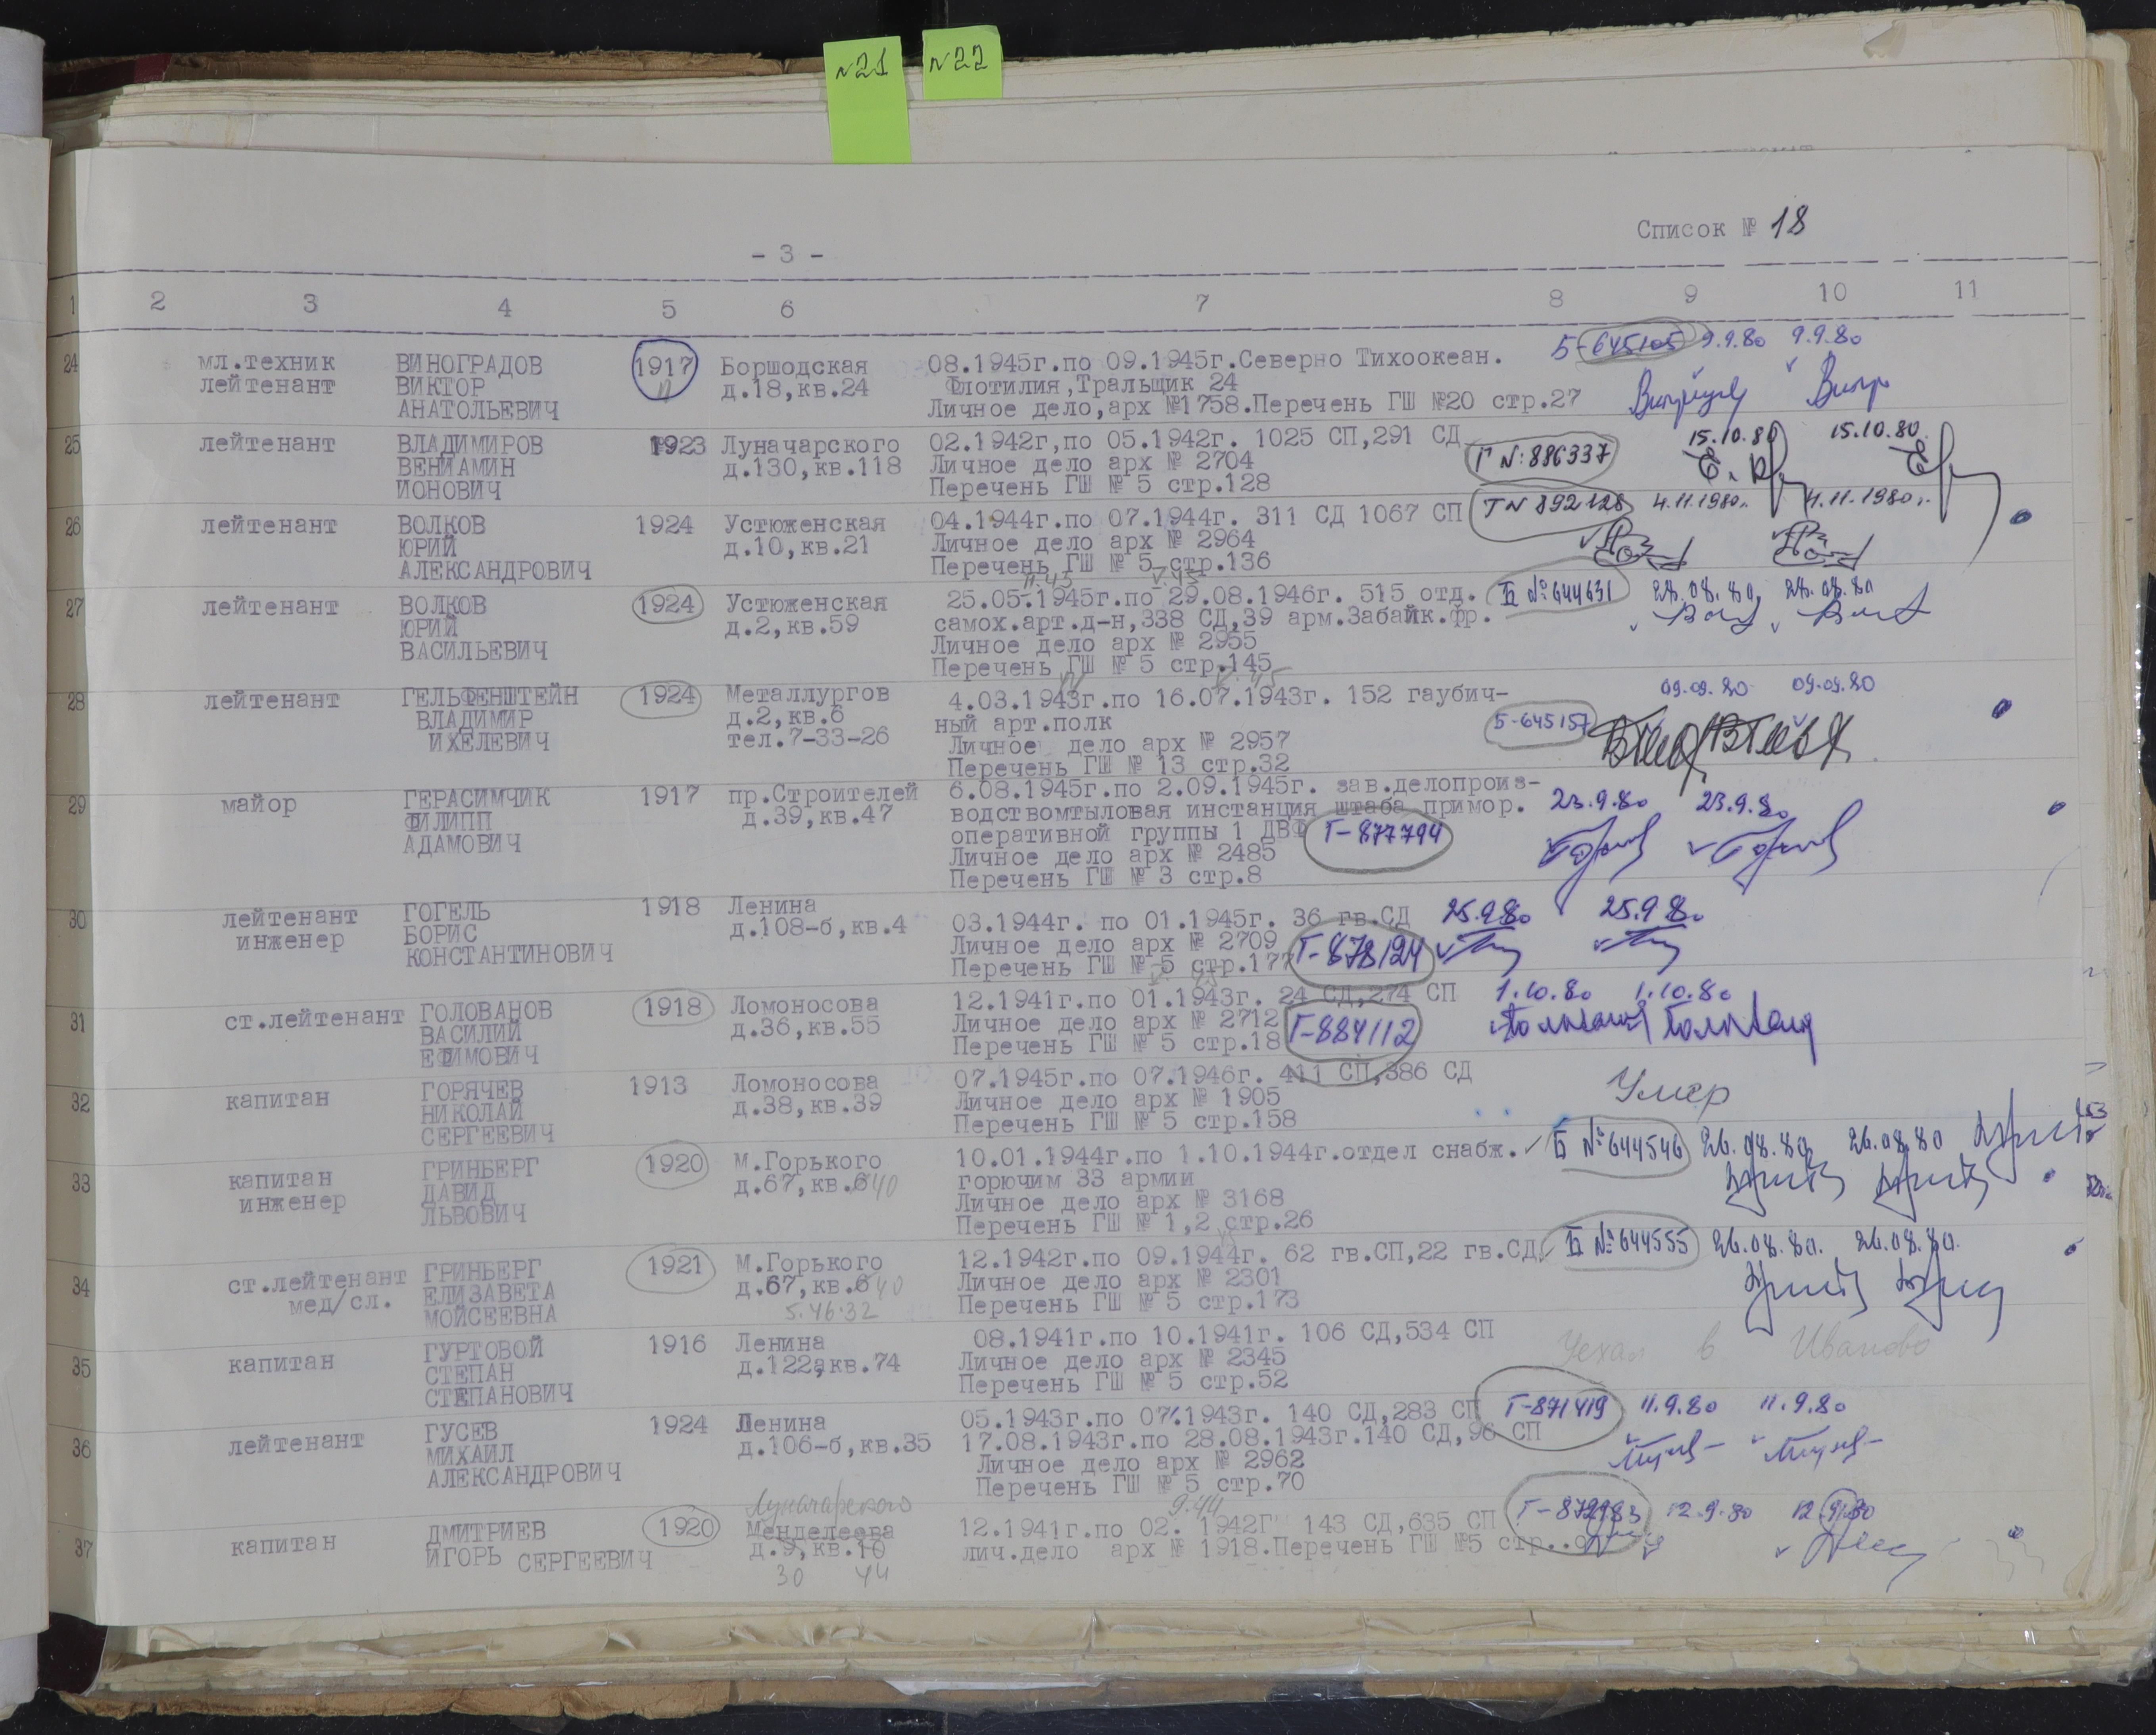 №21 №22
Список № 18
- 3 -
1 2 3 4 5 6 7 8 9 10 11
24 мл.техник ВИНОГРАДОВ 1917 Боршодская 08.1945г.по 09.1945г.Северно Тихоокеан. Б-645105 9.9.80 9.9.80
лейтенант ВИКТОР д.18,кв.24 Флотилия,Тральщик 24
АНАТОЛЬЕВИЧ Личное дело,арх №1758.Перечень ГШ №20 стр.27
25 лейтенант ВЛАДИМИРОВ 1923 Луначарского 02.1942г,по 05.1942г. 1025 СП,291 СД Г №:886337 15.10.80 15.10.80.
ВЕНИАМИН д.130,кв.118 Личное дело арх № 2704
ИОНОВИЧ Перечень ГШ № 5 стр.128
26 лейтенант ВОЛКОВ 1924 Устюженская 04.1944г.по 07.1944г. 311 СД 1067 СП Г № 892128 4.11.1980г. 4.11.1980г.
ЮРИЙ д.10,кв.21 Личное дело арх № 2964
АЛЕКСАНДРОВИЧ Перечень ГШ № 5 стр.136
27 лейтенант ВОЛКОВ 1924 Устюженская 25.05.1945г.по 29.08.1946г. 515 отд. Б №644631 28.08.80. 28.08.80
ЮРИЙ д.2,кв.59 самох.арт.д-н,338 СД,39 арм.Забайк.фр.
ВАСИЛЬЕВИЧ Личное дело арх № 2955
Перечень ГШ № 5 стр.145
28 лейтенант ГЕЛЬФЕНШТЕЙН 1924 Металлургов 4.03.1943г.по 16.07.1943г. 152 гаубич- 09.09.80 09.09.80
ВЛАДИМИР д.2,кв.6 ный арт.полк Б-645157
ИХЕЛЕВИЧ тел.7-33-26 Личное дело арх № 2957
Перечень ГШ № 13 стр.32
29 майор ГЕРАСИМЧИК 1917 пр.Строителей 6.08.1945г.по 2.09.1945г. зав.делопроиз- 23.9.80 23.9.80
ФИЛИПП д.39,кв.47 водствомтыловая инстанция штаба примор.
АДАМОВИЧ оперативной группы 1 ДВФ Г-877794
Личное дело арх № 2485
Перечень ГШ № 3 стр.8
30 лейтенант ГОГЕЛЬ 1918 Ленина 03.1944г. по 01.1945г. 36 гв.СД 25.9.80 25.9.80
инженер БОРИС д.108-б,кв.4 Личное дело арх № 2709 Г-878124
КОНСТАНТИНОВИЧ Перечень ГШ № 5 стр.177
31 ст.лейтенант ГОЛОВАНОВ 1918 Ломоносова 12.1941г.по 01.1943г. 24 СД,274 СП 1.10.80 1.10.80
ВАСИЛИЙ д.36,кв.55 Личное дело арх № 2712 Г-884112
ЕФИМОВИЧ Перечень ГШ № 5 стр.18
32 капитан ГОРЯЧЕВ 1913 Ломоносова 07.1945г.по 07.1946г. 411 СП,386 СД Умер
НИКОЛАЙ д.38,кв.39 Личное дело арх № 1905
СЕРГЕЕВИЧ Перечень ГШ № 5 стр.158
33 капитан ГРИНБЕРГ 1920 М.Горького 10.01.1944г.по 1.10.1944г.отдел снабж. Б №644546 26.08.80 26.08.80
инженер ДАВИД д.67,кв.640 горючим 33 армии
ЛЬВОВИЧ Личное дело арх № 3168
Перечень ГШ № 1,2 стр.26
34 ст.лейтенант ГРИНБЕРГ 1921 М.Горького 12.1942г.по 09.1944г. 62 гв.СП,22 гв.СД. Б №644555 26.08.80. 26.08.80.
мед/сл. ЕЛИЗАВЕТА д.67,кв.640 Личное дело арх № 2301
МОЙСЕЕВНА 5.46.32 Перечень ГШ № 5 стр.173
35 капитан ГУРТОВОЙ 1916 Ленина 08.1941г.по 10.1941г. 106 СД,534 СП Уехал в Иваново
СТЕПАН д.122а,кв.74 Личное дело арх № 2345
СТЕПАНОВИЧ Перечень ГШ № 5 стр.52
36 лейтенант ГУСЕВ 1924 Ленина 05.1943г.по 07.1943г. 140 СД,283 СП Г-871419 11.9.80 11.9.80
МИХАИЛ д.106-б,кв.35 17.08.1943г.по 28.08.1943г.140 СД,96 СП
АЛЕКСАНДРОВИЧ Личное дело арх № 2962
Перечень ГШ № 5 стр.70
Луначарского 9.44
37 капитан ДМИТРИЕВ 1920 Менделеева 12.1941г.по 02. 1942Г 143 СД,635 СП 12.9.80 12.9.80
ИГОРЬ СЕРГЕЕВИЧ д.9,кв.10 лич.дело арх № 1918.Перечень ГШ №5 стр.
30 44